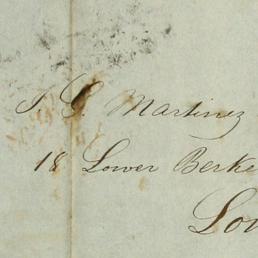 J G Martinez
18 Lower Berke
Lo